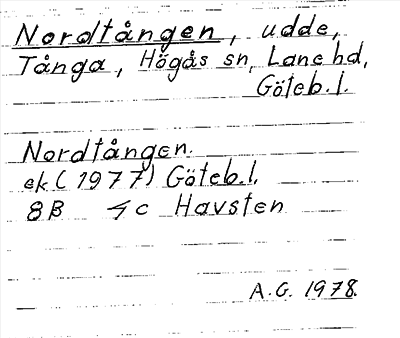 Nordtången, udde,
Tånga, Högås sn, Lane hd,
Göteb. l.
Nordtången.
ek (1977) Göteb. l.
8B 4c Havsten
A.G. 1978.